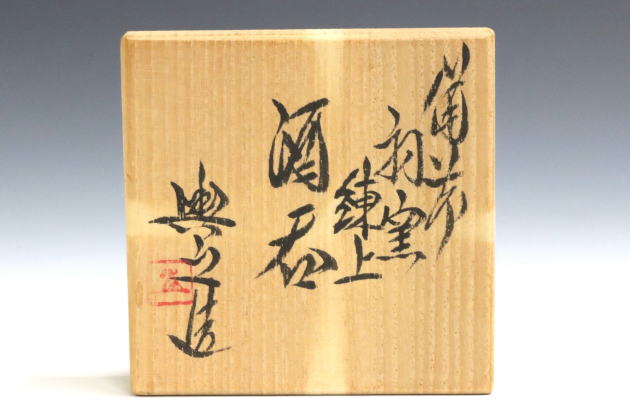 備前
初窯
練上
酒呑
造